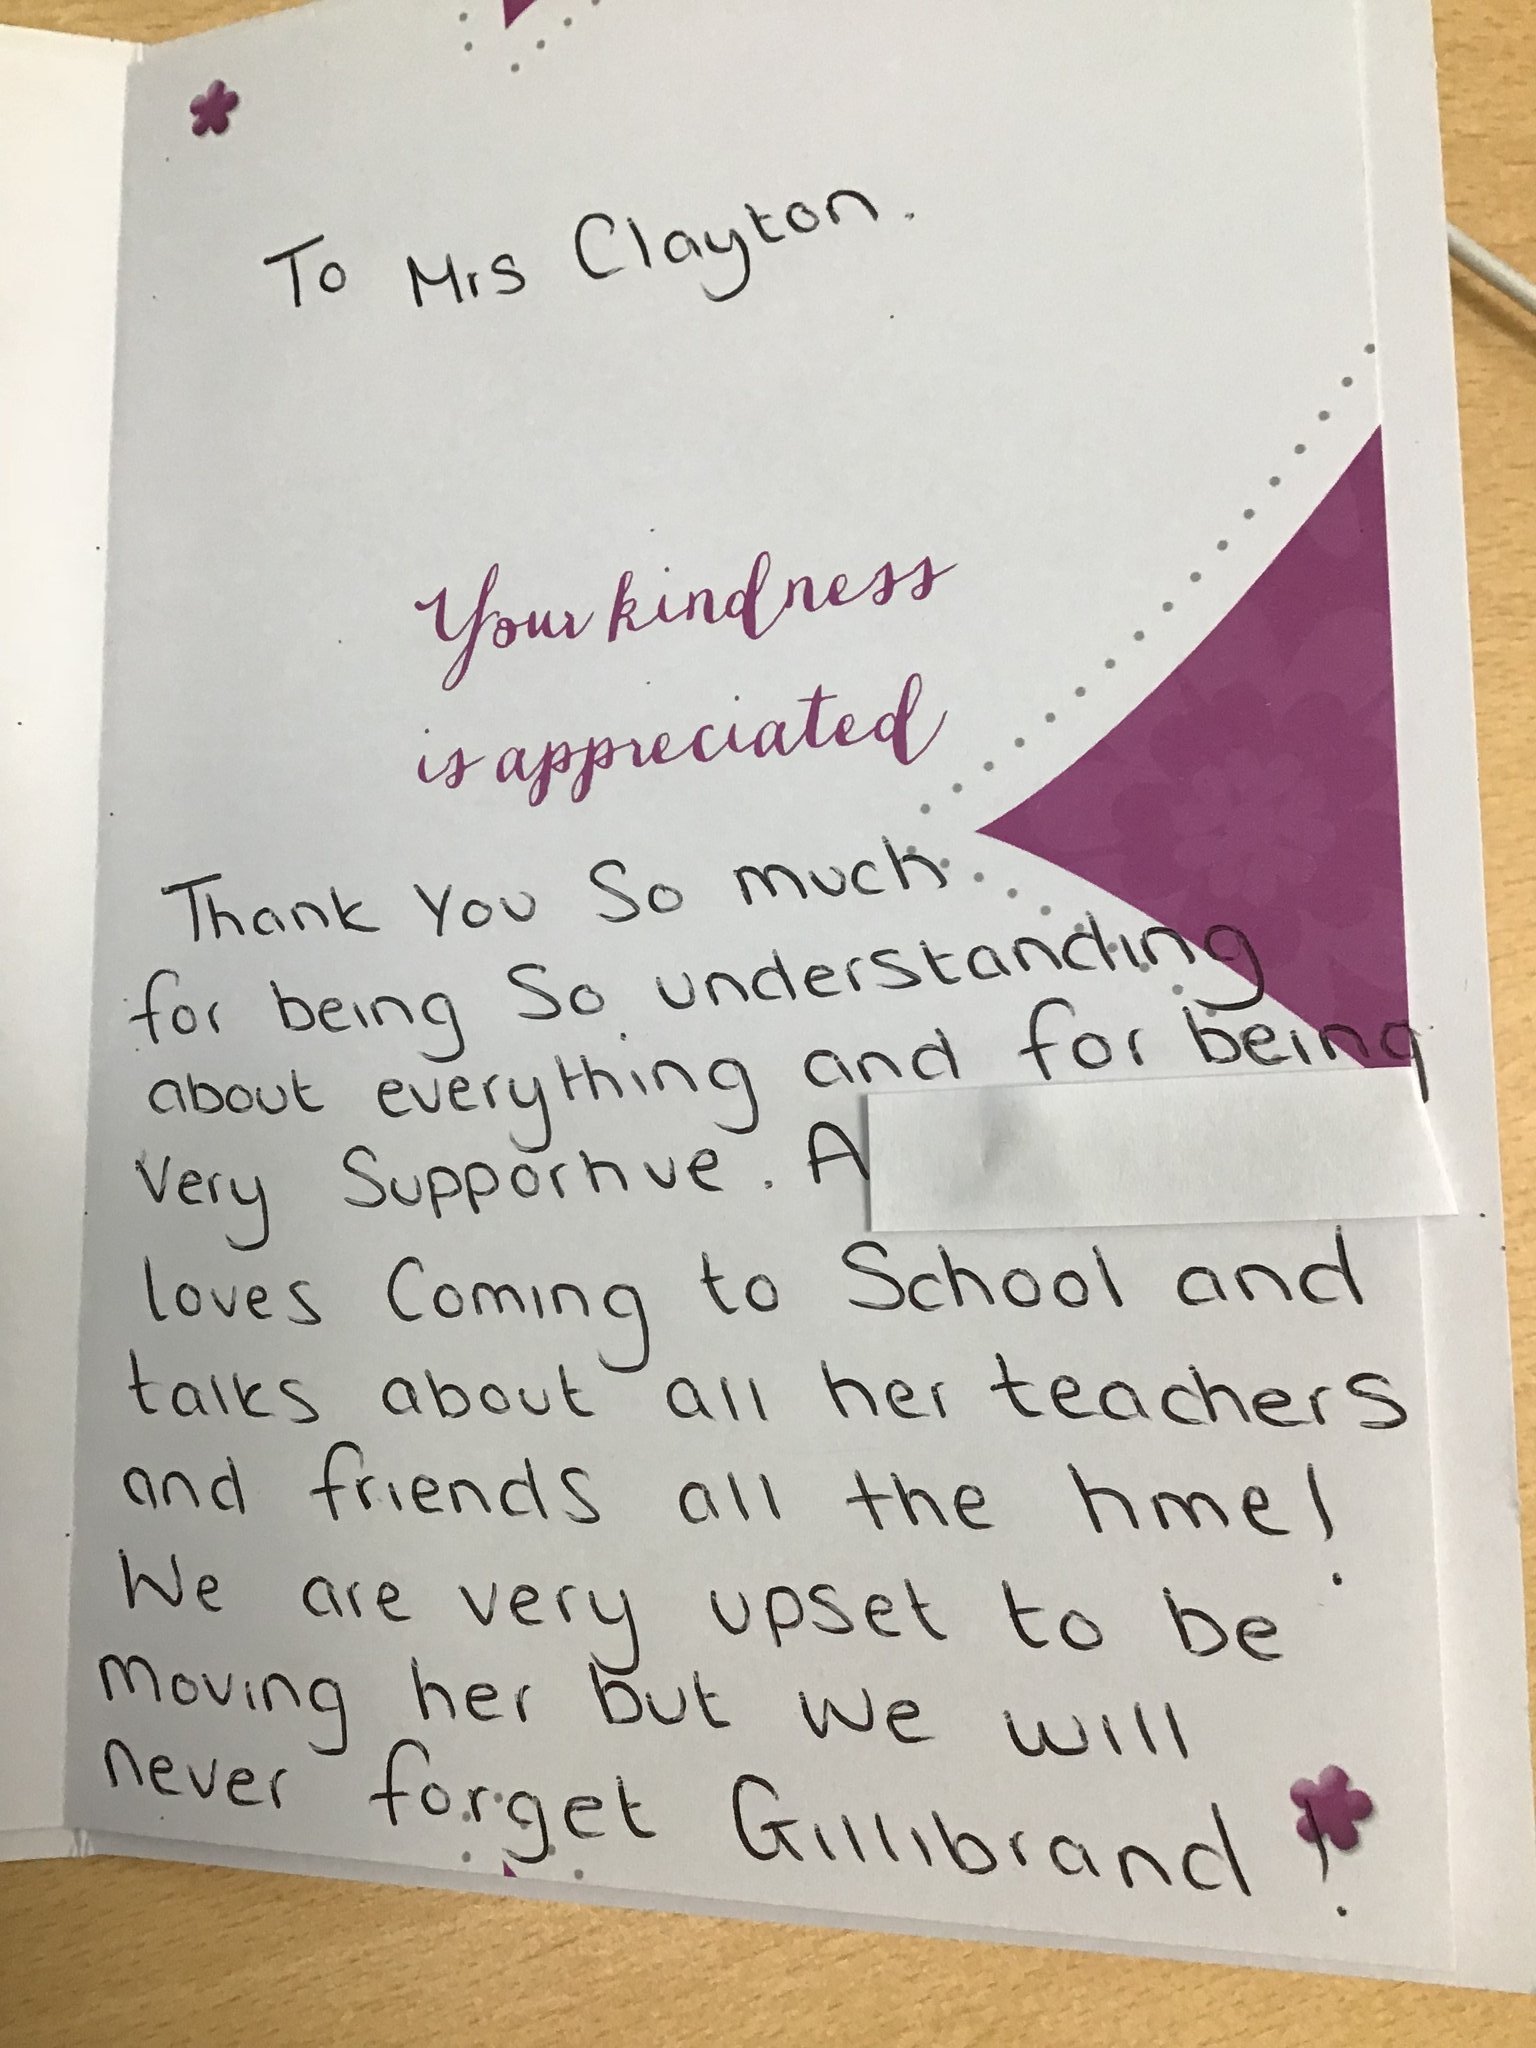 To Mrs Clayton.
Your kindness
is appreciated
Thank You So much
for being So understanding
about everything and for being
very Supportive. A
loves Coming to School and
talks about all her teachers
and friends all the time!
We are very upset to be
moving her but we will
never forget Gillibrand!